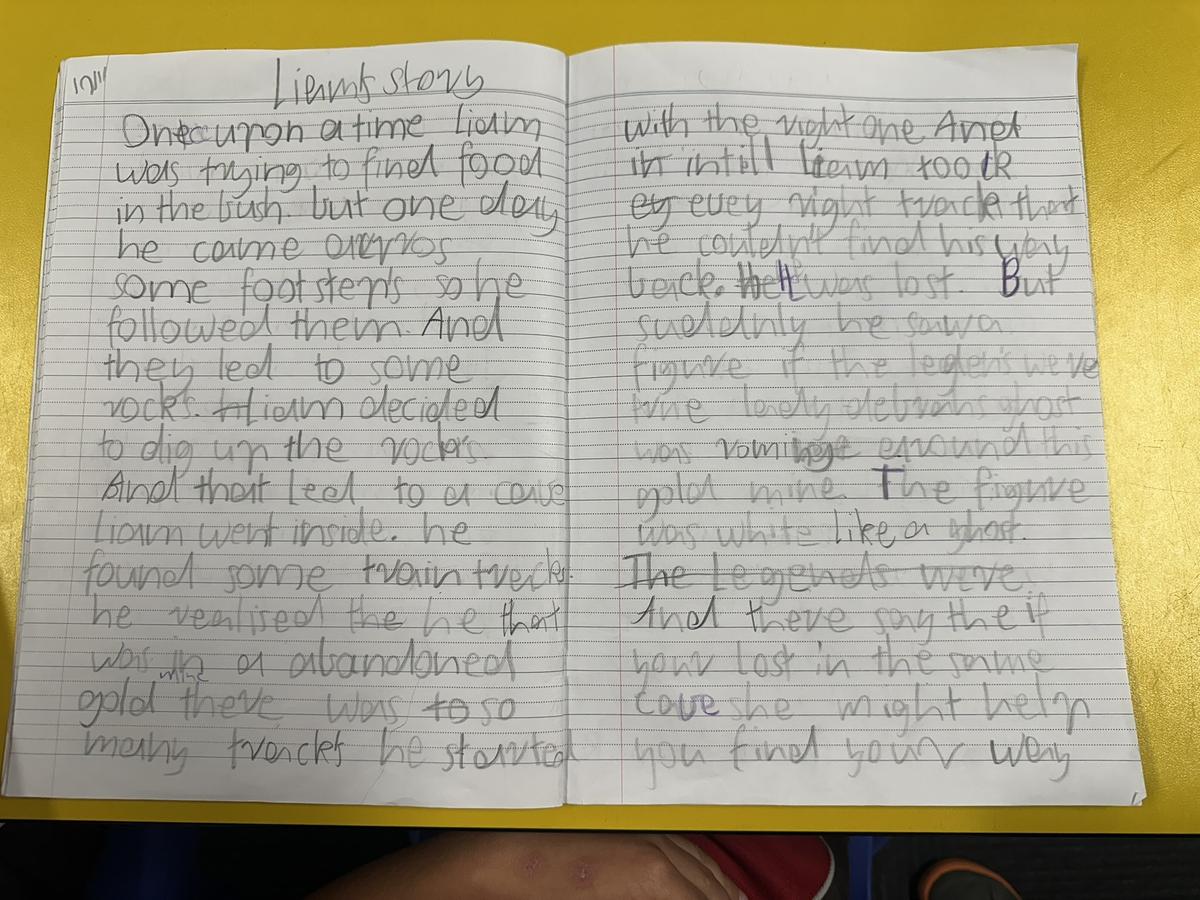 17/11
Liam's story
Once upon a time Liam
was trying to find food
in the bush. but one day
he came arcros
some footsteps so he
followed them. And
they led to some
rocks. Liam decided
to dig up the rocks.
And that led to a cave
Liam went inside. he
found some train tracks.
he realised the he that
was in a abandoned
mine
gold there was to so
many tracks he started
with the right one. And
in intill Liam took
ey evey right track that
he couldn't find his way
back. He was lost. But
suddenly he saw a
figure if the legdens were
true lady debrahs ghost
was roming eround this
gold mine. The figure
was white like a ghost.
The Legends were
And there say the if
your lost in the same
cave she might help
you find your way